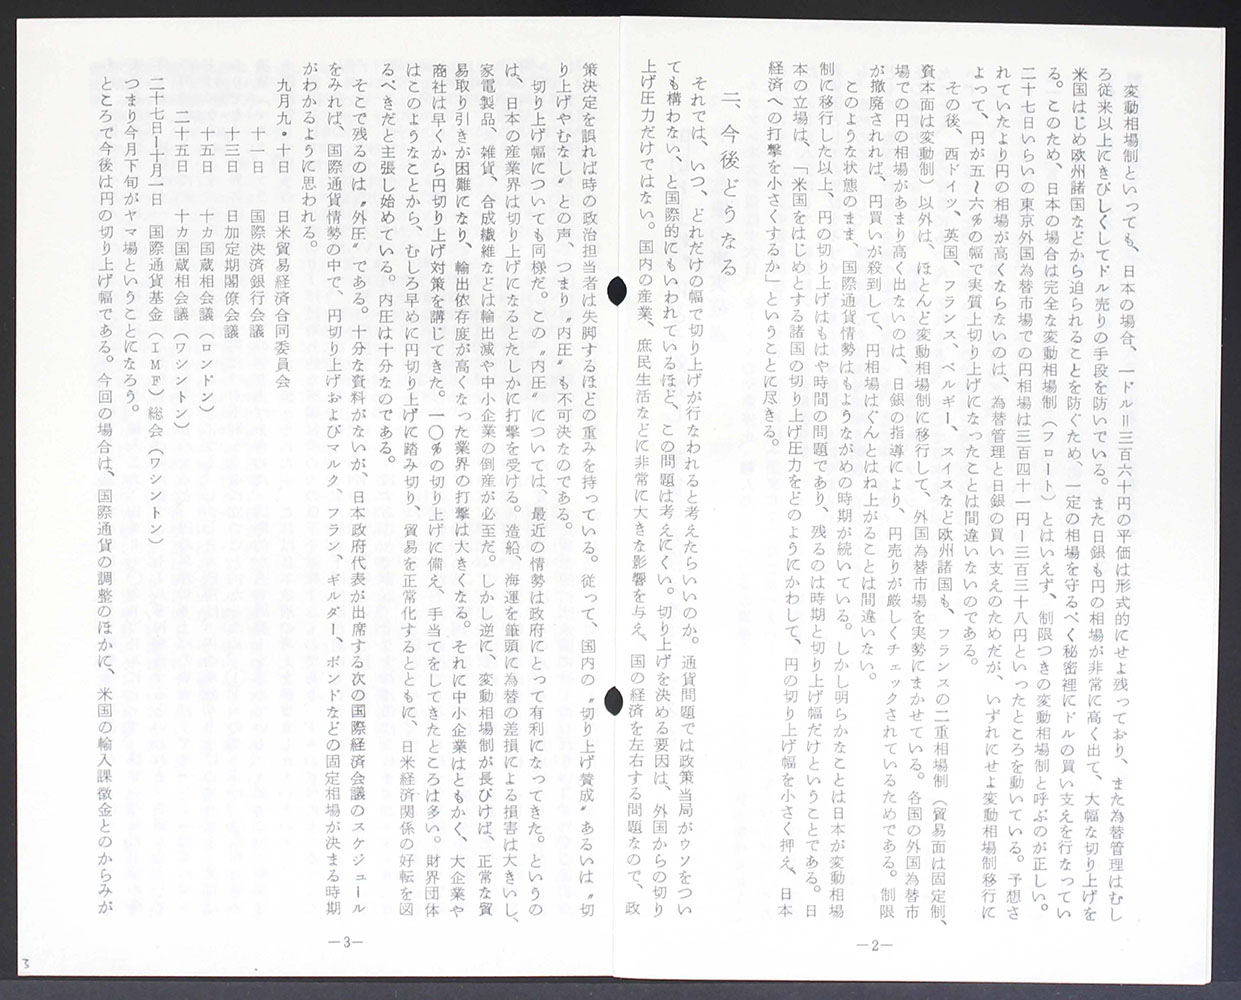 変動相場制といっても、日本の場合、一ドル＝三百六十円の平価は形式的にせよ残っており、また為替管理はむし
ろ従来以上にきびしくしてドル売りの手段を防いでいる。また日銀も円の相場が非常に高く出て、大幅な切り上げを
米国はじめ欧州諸国などから迫られることを防ぐため、一定の相場を守るべく秘密裡にドルの買い支えを行なってい
る。このため、日本の場合は完全な変動相場制（フロート）とはいえず、制限つきの変動相場制と呼ぶのが正しい。
二十七日いらいの東京外国為替市場での円相場は三百四十一円―三百三十八円といったところを動いている。予想さ
れていたより円の相場が高くならないのは、為替管理と日銀の買い支えのためだが、いずれにせよ変動相場制移行に
よって、円が五〜六％の幅で実質上切り上げになったことは間違いないのである。
その後、西ドイツ、英国、フランス、ベルギー、スイスなど欧州諸国も、フランスの二重相場制（貿易面は固定制、
資本面は変動制）以外は、ほとんど変動相場制に移行して、外国為替市場を実勢にまかせている。各国の外国為替市
場での円の相場があまり高く出ないのは、日銀の指導により、円売りが厳しくチェックされているためである。制限
が撤廃されれば、円買いが殺到して、円相場はぐんとはね上がることは間違いない。
このような状態のまま、国際通貨情勢はもようながめの時期が続いている。しかし明らかなことは日本が変動相場
制に移行した以上、円の切り上げはもはや時間の問題であり、残るのは時期と切り上げ幅だけということである。日
本の立場は、「米国をはじめとする諸国の切り上げ圧力をどのようにかわして、円の切り上げ幅を小さく押え、日本
経済への打撃を小さくするか」ということに尽きる。
二、今後どうなる
それでは、いつ、どれだけの幅で切り上げが行なわれると考えたらいいのか。通貨問題では政策当局がウソをつい
ても構わない、と国際的にもいわれているほど、この問題は考えにくい。切り上げを決める要因は、外国からの切り
上げ圧力だけではない。国内の産業、庶民生活などに非常に大きな影響を与え、国の経済を左右する問題なので、政
―2―
策決定を誤れば時の政治担当者は失脚するほどの重みを持っている。従って、国内の〝切り上げ賛成〟あるいは〝切
り上げやむなし〟との声、つまり〝内圧〟も不可決なのである。
切り上げ幅についても同様だ。この〝内圧〟については、最近の情勢は政府にとって有利になってきた。というの
は、日本の産業界は切り上げになるとたしかに打撃を受ける。造船、海運を筆頭に為替の差損による損害は大きいし、
家電製品、雑貨、合成繊維などは輸出減や中小企業の倒産が必至だ。しかし逆に、変動相場制が長びけば、正常な貿
易取り引きが困難になり、輸出依存度が高くなった業界の打撃は大きくなる。それに中小企業はともかく、大企業や
商社は早くから円切り上げ対策を講じてきた。一〇％の切り上げに備え、手当てをしてきたところは多い。財界団体
はこのようなことから、むしろ早めに円切り上げに踏み切り、貿易を正常化するとともに、日米経済関係の好転を図
るべきだと主張し始めている。内圧は十分なのである。
そこで残るのは〝外圧〟である。十分な資料がないが、日本政府代表が出席する次の国際経済会議のスケジュール
をみれば、国際通貨情勢の中で、円切り上げおよびマルク、フラン、ギルダー、ポンドなどの固定相場が決まる時期
がわかるように思われる。
九月九・十日　日米貿易経済合同委員会
十一日　国際決済銀行会議
十三日　日加定期閣僚会議
十五日　十カ国蔵相会議（ロンドン）
二十五日　十カ国蔵相会議（ワシントン）
二十七日―十月一日　国際通貨基金（IMF）総会（ワシントン）
つまり今月下旬がヤマ場ということになろう。
ところで今後は円の切り上げ幅である。今回の場合は、国際通貨の調整のほかに、米国の輸入課徴金とのからみが
―3―
3